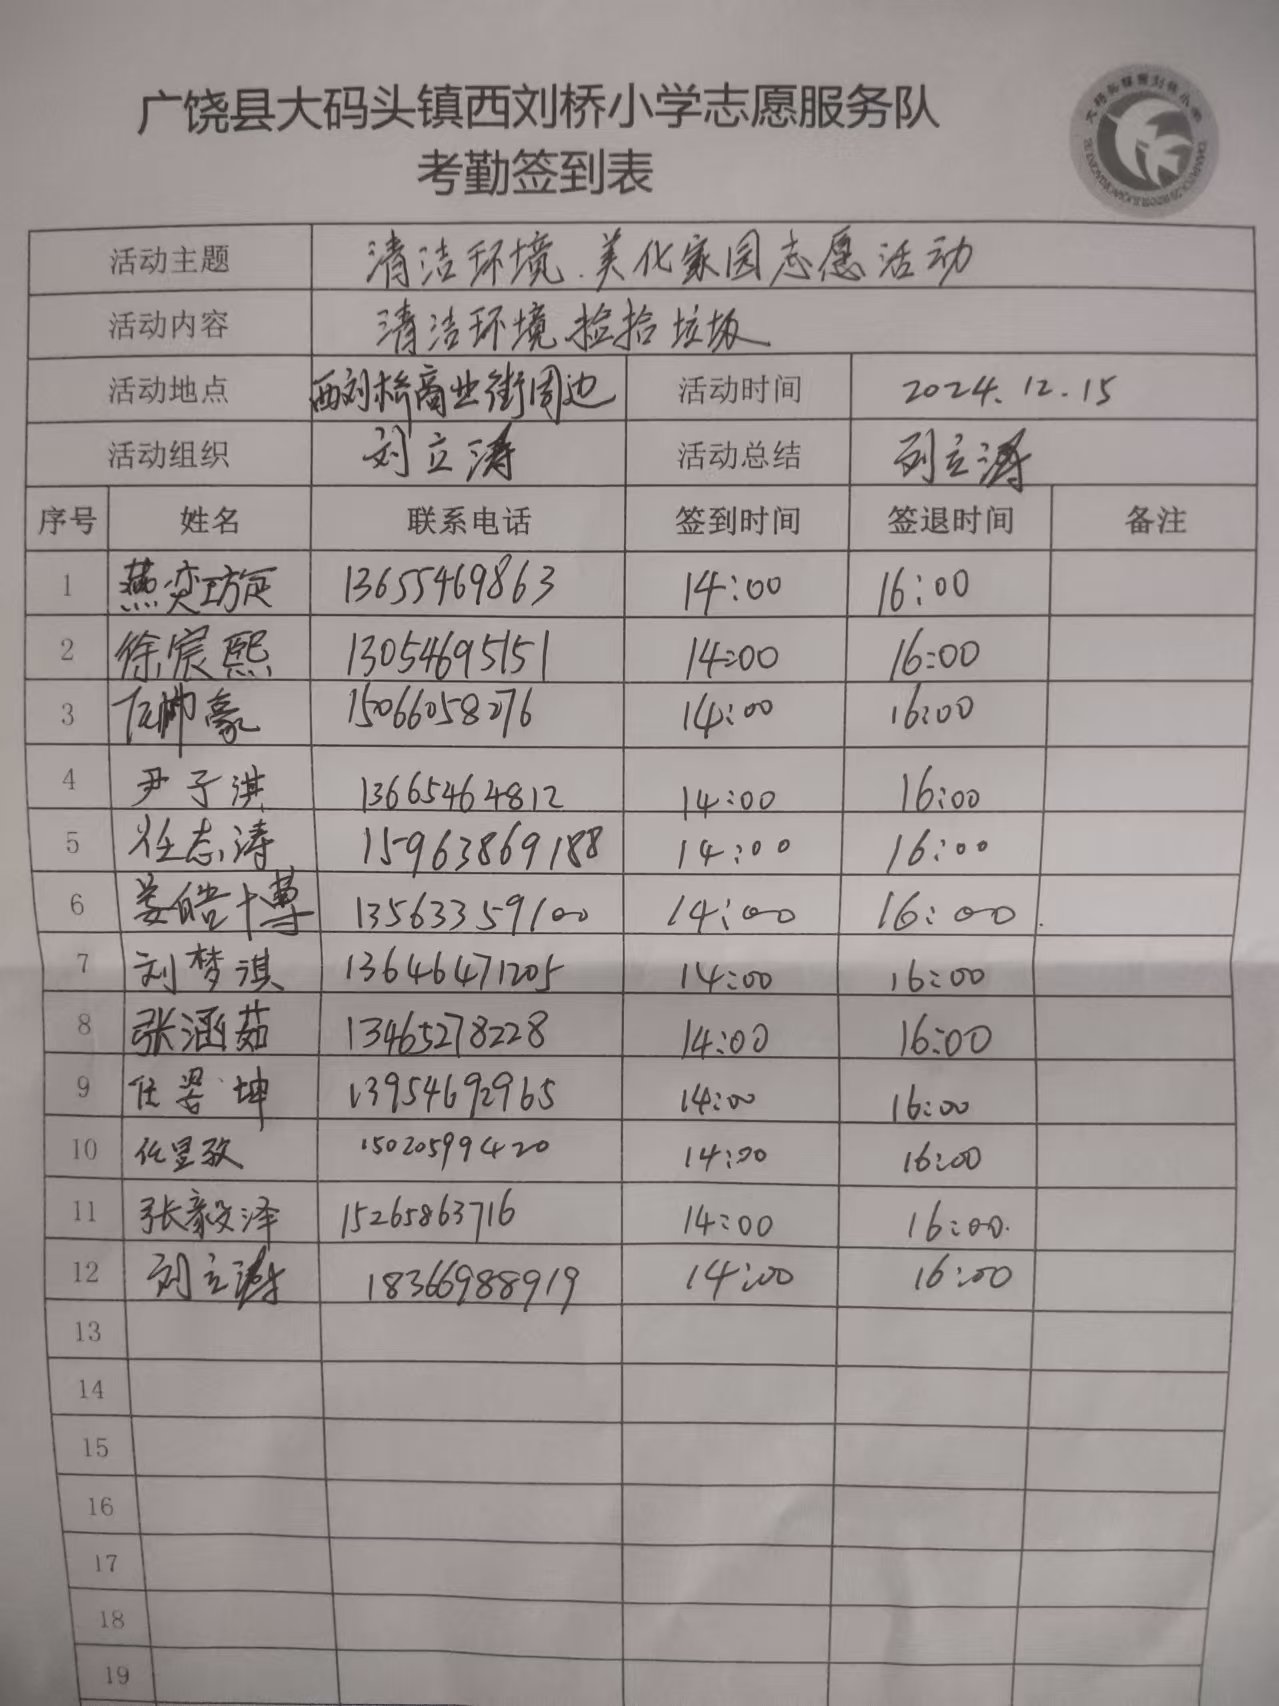 广饶县大码头镇西刘桥小学志愿服务队
考勤签到表
活动主题 清洁环境.美化家园志愿活动
活动内容 清洁环境 捡拾垃圾
活动地点 西刘桥商业街周边 活动时间 2024.12.15
活动组织 刘立涛 活动总结 刘立涛
序号 姓名 联系电话 签到时间 签退时间 备注
1 燕奕 13655469863 14:00 16:00
2 徐宸熙 13054695151 14:00 16:00
3 帅豪 15066058276 14:00 16:00
4 尹子淇 13665464812 14:00 16:00
5 任志涛 15963869188 14:00 16:00
6 姜皓博 13563359100 14:00 16:00
7 刘梦淇 13646471205 14:00 16:00
8 张涵茹 13465278228 14:00 16:00
9 任 坤 13954692965 14:00 16:00
10 任昱孜 15020599420 14:00 16:00
11 张毅泽 15265863716 14:00 16:00
12 刘立涛 18366988919 14:00 16:00
13
14
15
16
17
18
19